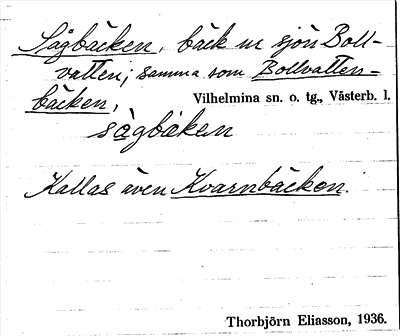 Sågbäcken, bäck ur sjön Boll-
vatten; samma som Bollvatten=
bäcken, Vilhelmina sn. o. tg., Västerb. l.
sågbäken
Kallas även Kvarnbäcken.
Thorbjörn Eliasson, 1936.